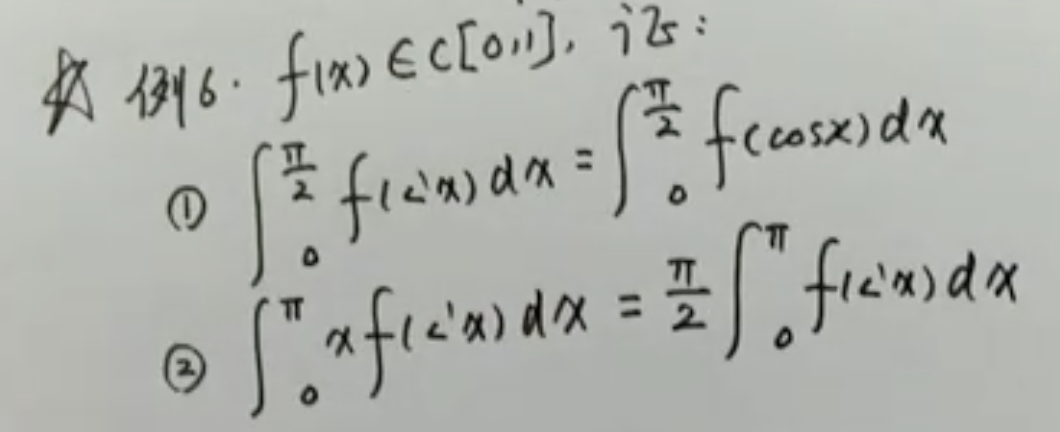 ☆ 例6. f(x)∈C[0,1], 证:
① ∫₀^{π/2} f(sin x)dx = ∫₀^{π/2} f(cosx)dx
② ∫₀^π x f(sin x)dx = π/2 ∫₀^π f(sin x)dx